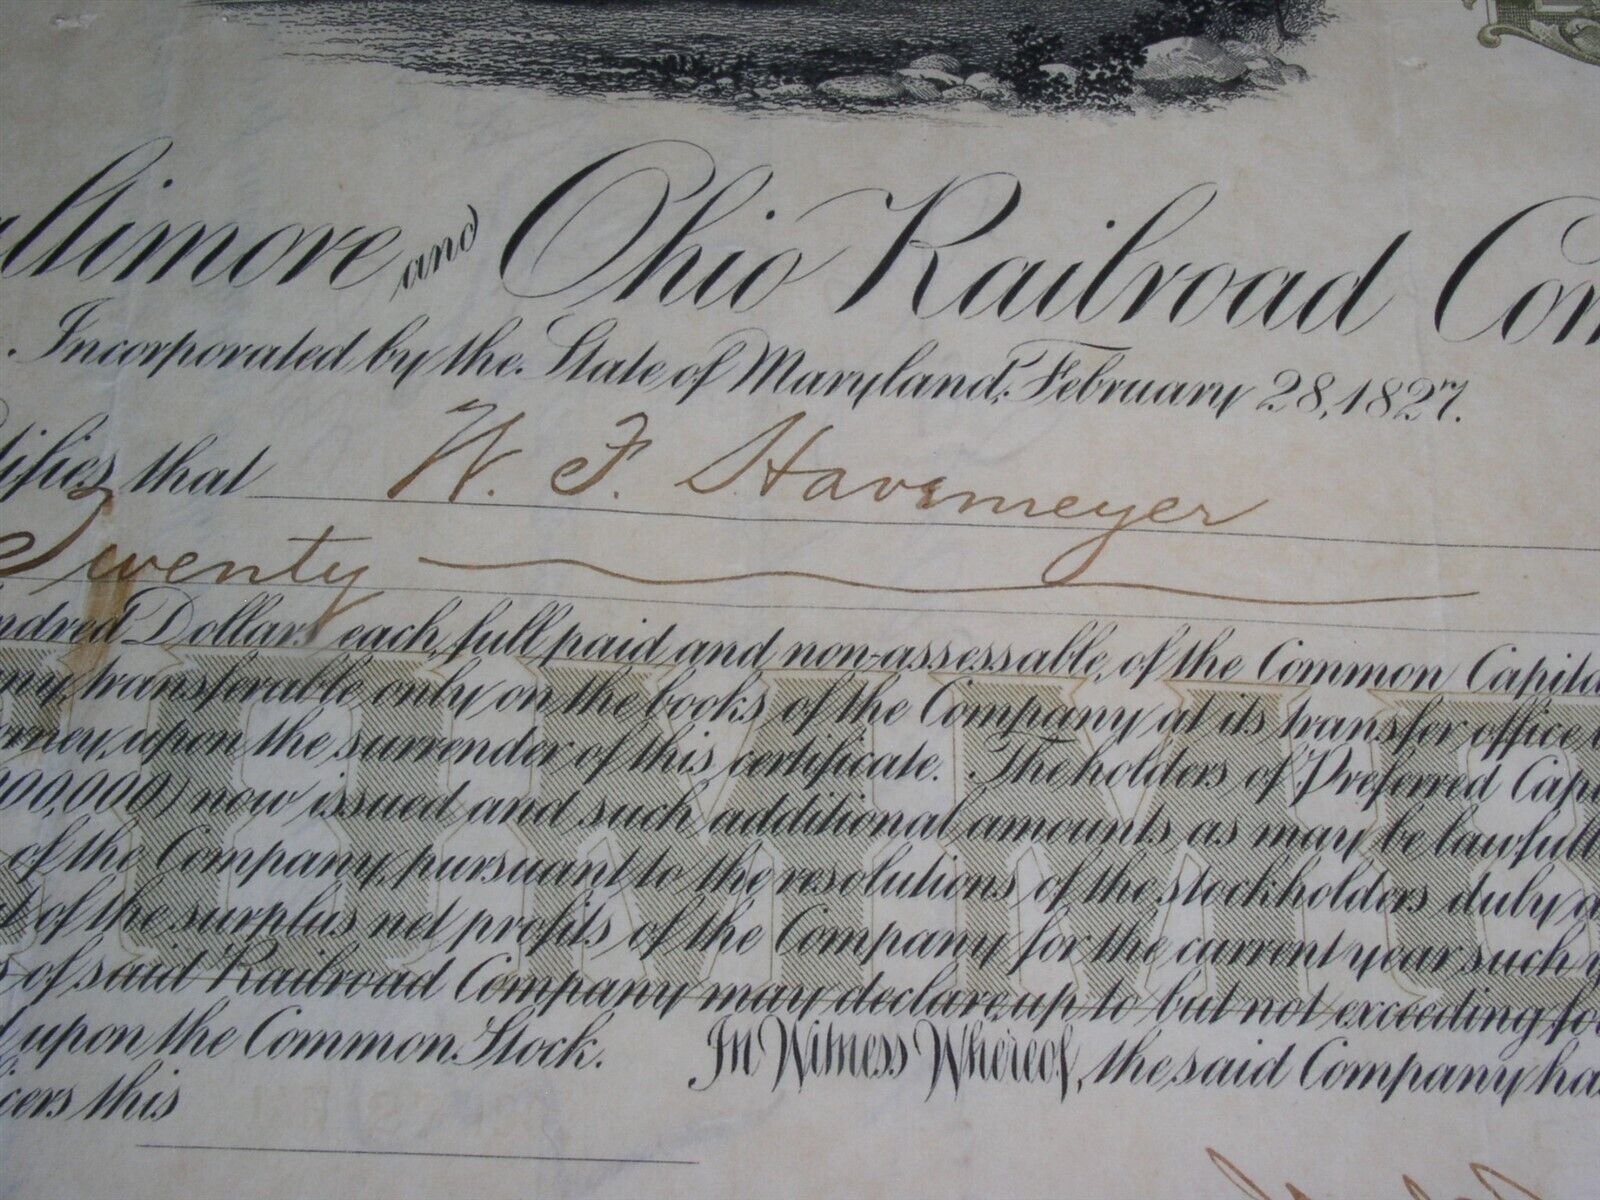 altimore and Ohio Railroad Com
Incorporated by the State of Maryland, February 28, 1827.
tifies that W. F. Havemeyer
Twenty
ndred Dollars each, full paid and non-assessable, of the Common Capita
ny, transferable only on the books of the Company at its transfer office
orney, upon the surrender of this certificate. The holders of Preferred Capi
000,000) now issued and such additional amounts as may be lawfull
of the Company, pursuant to the resolutions of the stockholders duly a
t of the surplus net profits of the Company for the current year such y
s of said Railroad Company may declare, up to but not exceeding fo
d upon the Common Stock. In Witness Whereof, the said Company ha
cers this